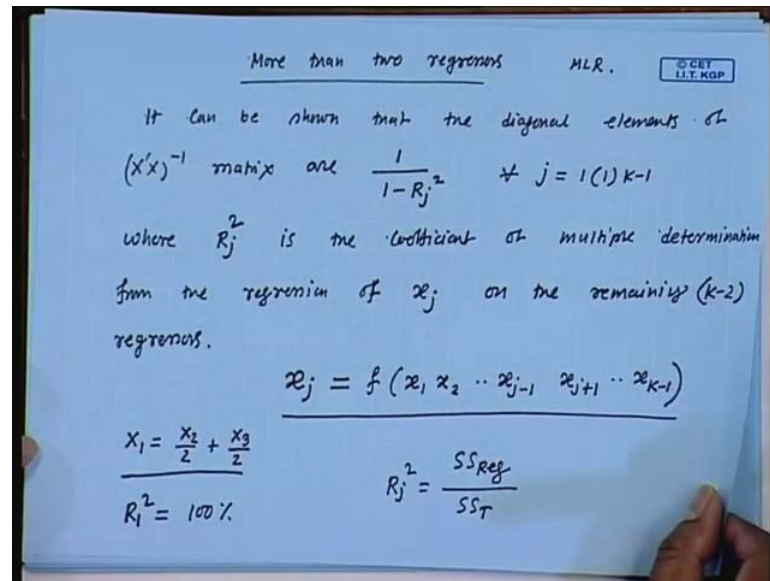 More than two regressors MLR.
© CET
I.I.T. KGP
It can be shown that the diagonal elements of
(X'X)⁻¹ matrix are 1/(1 - Rj²) ∀ j = 1(1)K-1
where Rj² is the coefficient of multiple determination
from the regression of xj on the remaining (K-2)
regressors.
xj = f(x1 x2 .. xj-1 xj+1 .. xK-1)
X1 = X2/2 + X3/2
R1² = 100%
Rj² = SSReg/SST